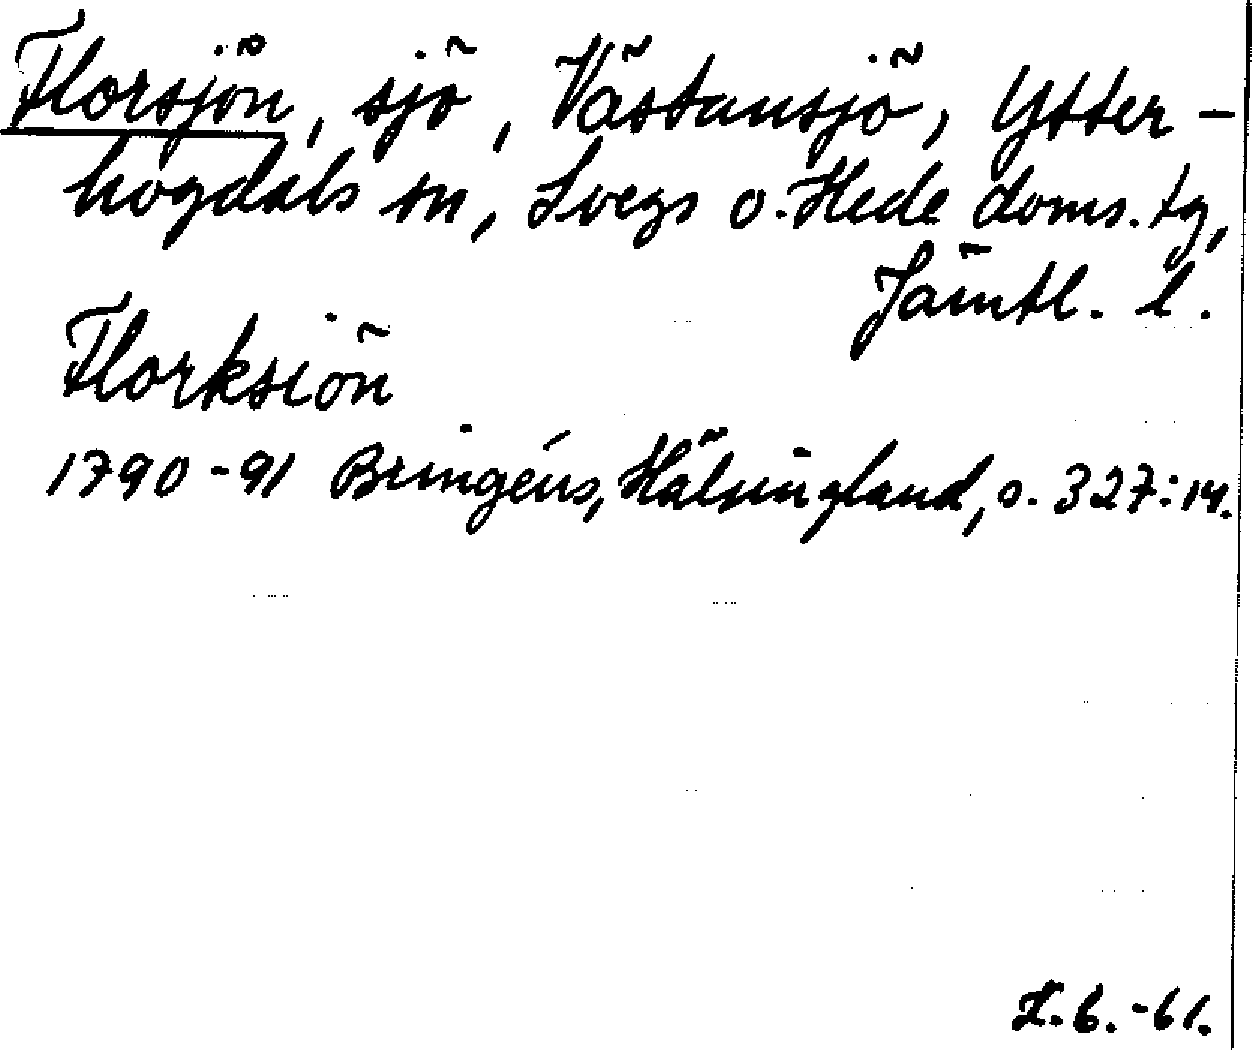 Florsjön, sjö, Västansjö, Ytter-
hogdals sn, Svegs o. Hede doms. tg,
Jämtl. l.
Florksiön
1790-91 Bringéus, Hälsingland, s. 327:14.
H.b.-61.